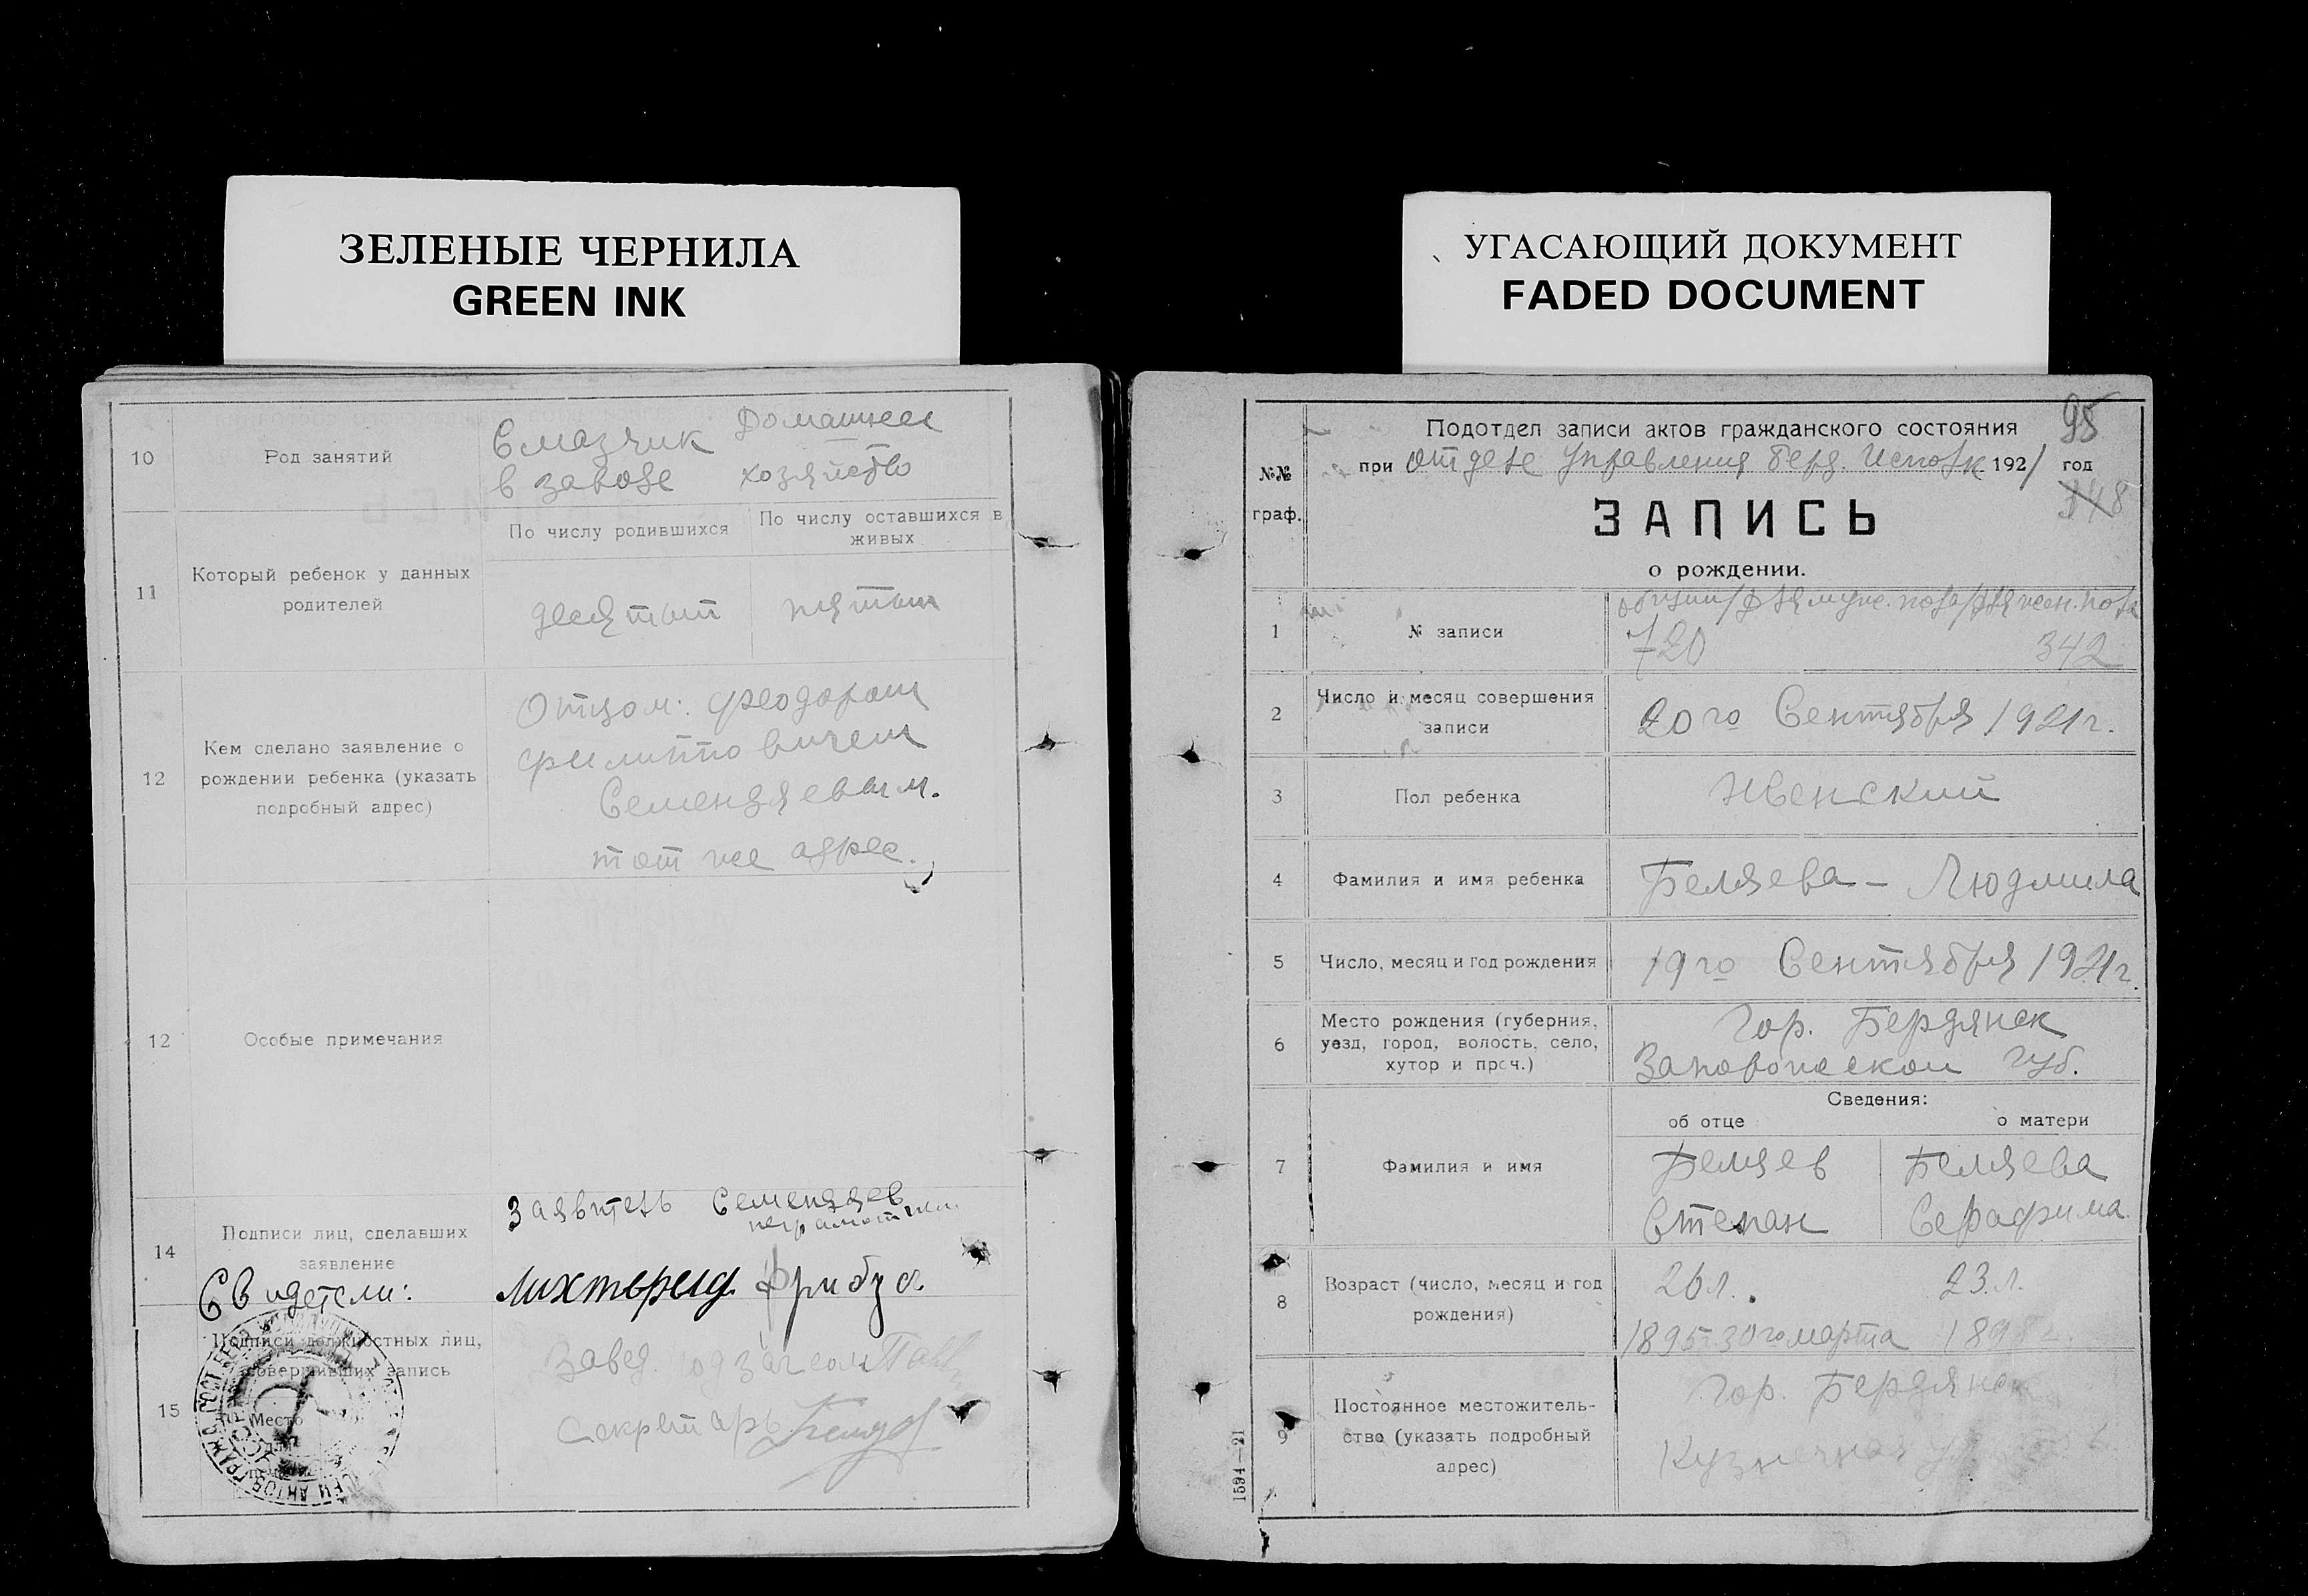 ЗЕЛЕНЫЕ ЧЕРНИЛА
GREEN INK
10
Род занятий
Смазчик
в заводе
Домашнее
хозяйство
11
Который ребенок у данных
родителей
По числу родившихся
По числу оставшихся в
живых
десятый
пятый
12
Кем сделано заявление о
рождении ребенка (указать
подробный адрес)
Отцом: Феодором
Филипповичем
Семендяевым.
тот же адрес.
12
Особые примечания
14
Подписи лиц, сделавших
заявление
Свидетели:
Заявитель Семендяев
неграмотный
15
Подписи должностных лиц,
совершивших запись
Место
Завед.
Секретарь
УГАСАЮЩИЙ ДОКУМЕНТ
FADED DOCUMENT
95
№№
граф.
Подотдел записи актов гражданского состояния
при отделе Управления Берд. Исполк 1921 год
348
ЗАПИСЬ
о рождении.
1
№ записи
общий/для муж. пола/для жен. пола
720 342
2
Число и месяц совершения
записи
20го Сентября 1921г.
3
Пол ребенка
Женский
4
Фамилия и имя ребенка
Беляева - Людмила
5
Число, месяц и год рождения
19го Сентября 1921г.
6
Место рождения (губерния,
уезд, город, волость, село,
хутор и проч.)
Гор. Бердянск
губ.
Сведения:
об отце
о матери
7
Фамилия и имя
Беляев
Степан
Беляева
Серафима
8
Возраст (число, месяц и год
рождения)
26 л.
23 л.
1895 30го марта
9
Постоянное местожитель-
ство (указать подробный
адрес)
Гор. Бердянск
Кузнечная
1594—21